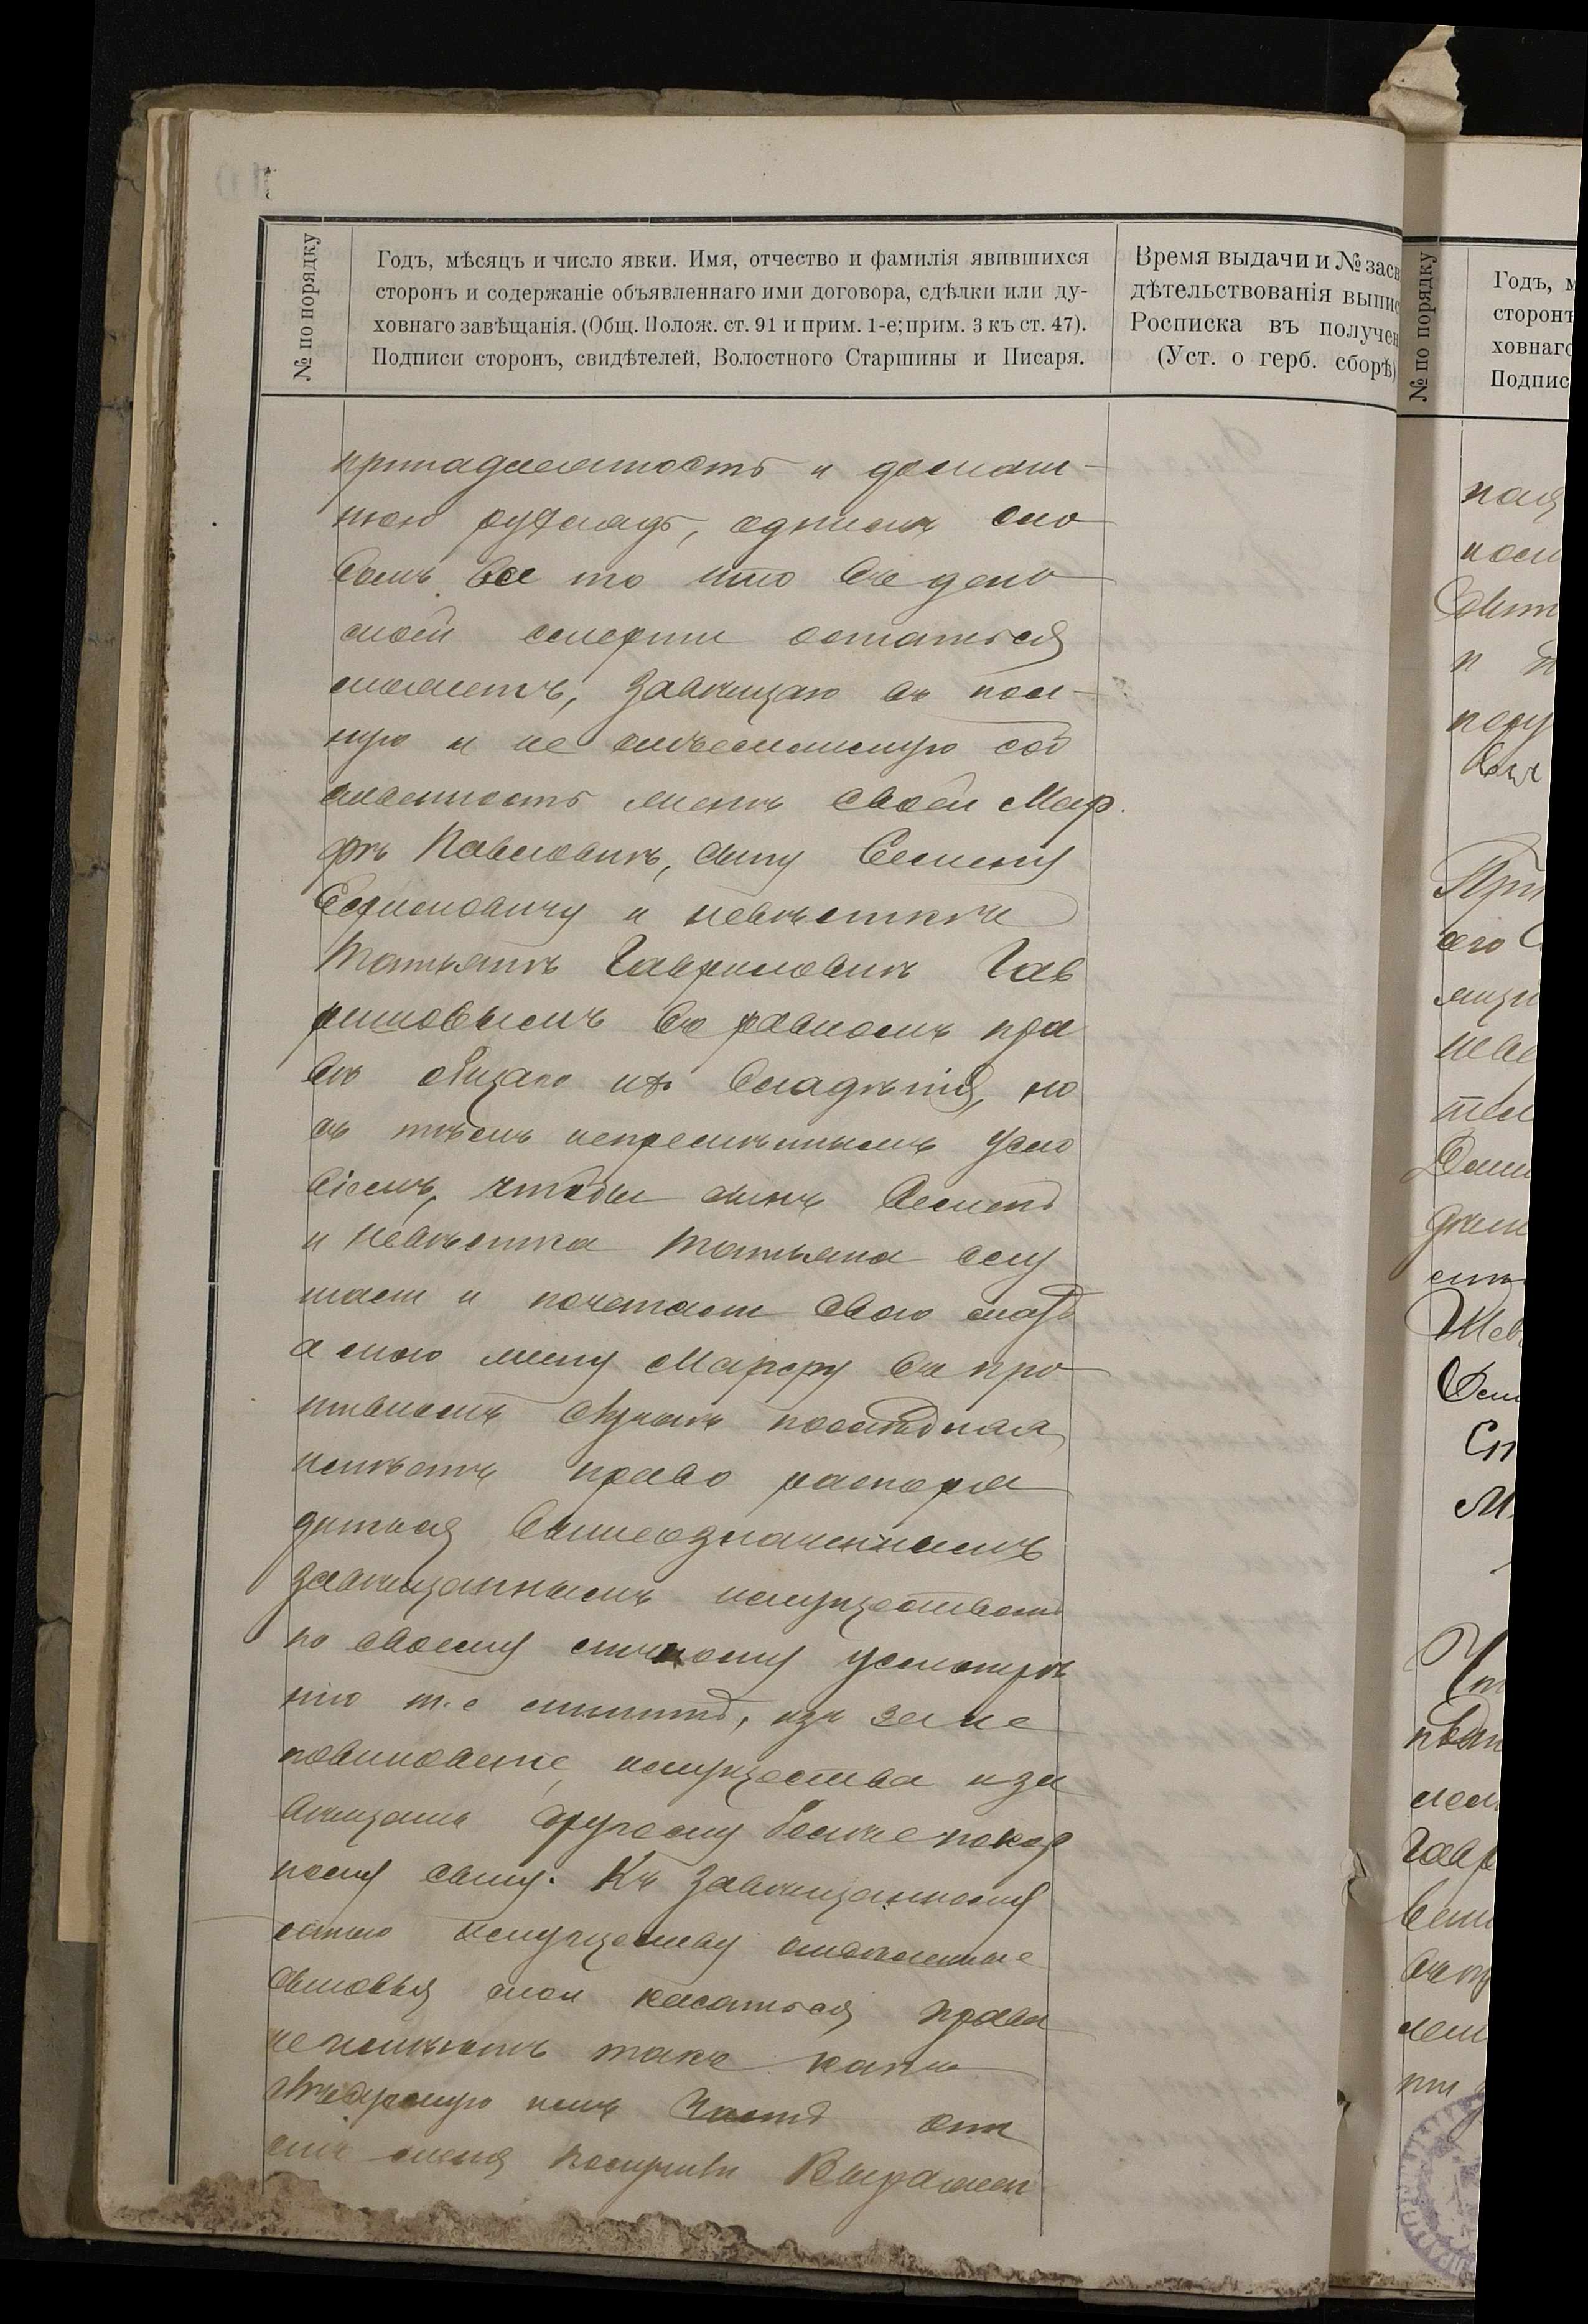 № по порядку
Годъ, мѣсяцъ и число явки. Имя, отчество и фамилія явившихся
сторонъ и содержаніе объявленнаго ими договора, сдѣлки или ду-
ховнаго завѣщанія. (Общ. Полож. ст. 91 и прим. 1-е; прим. 3 къ ст. 47).
Подписи сторонъ, свидѣтелей, Волостного Старшины и Писаря.
Время выдачи и № засв
дѣтельствованія выпис
Росписка въ получен
(Уст. о герб. сборѣ)
принадлежность и домаш-
нюю рухлядь, однимъ сло
вомъ все то что въ день
моей смерти остаться
можетъ, завѣщаю въ пол-
ную и не отъемлемую соб
ственность женѣ своей Мар.
фѣ Павловнѣ, сыну Семену
Ефимовичу и невѣсткѣ
Татьянѣ Гавриловнѣ Гав
риловымъ въ равномъ пра
вѣ общаго ихъ владѣнія, но
съ тѣмъ непремѣннымъ усло
віемъ, чтобы сынъ Семенъ
и невѣстка Татьяна слу
шали и почетали свою мать
а мою жену Марфу въ про
тивномъ случаѣ последняя
имѣетъ право распоря
диться вышеозначеннымъ
завѣщаннымъ имуществомъ
по своему личному усмотрѣ
нію т. е лишить, изъ за не
повиновеніе, имущества и за
вѣщать другому более покор
ному сыну. Къ завѣщанному
мною имуществу отделенные
сыновья мои касаться права
не имѣютъ такъ какъ
слѣдуемую имъ часть они
отъ меня получили Выражен
№ по порядку
Годъ, м
сторонъ
ховнаго
Подпис